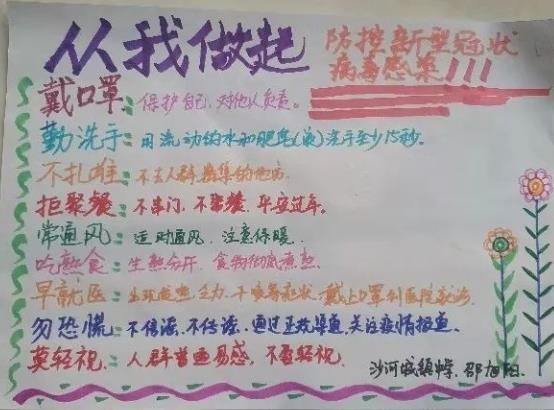 从我做起
防控新型冠状
病毒感染!!!
戴口罩:保护自己,对他人负责。
勤洗手:用流动的水和肥皂(液)洗手至少15秒。
不扎堆:不去人群聚集的地方
拒聚餐:不串门,不聚餐,平安过年。
常通风:适时通风,注意保暖.
吃熟食:生熟分开,食物彻底煮熟.
早就医:出现发热,乏力,干咳等症状,戴上口罩到医院就诊.
勿恐慌:不信谣,不传谣,通过正规渠道,关注疫情报道.
莫轻视:人群普遍易感,不要轻视.
沙河城镇 邵旭阳.